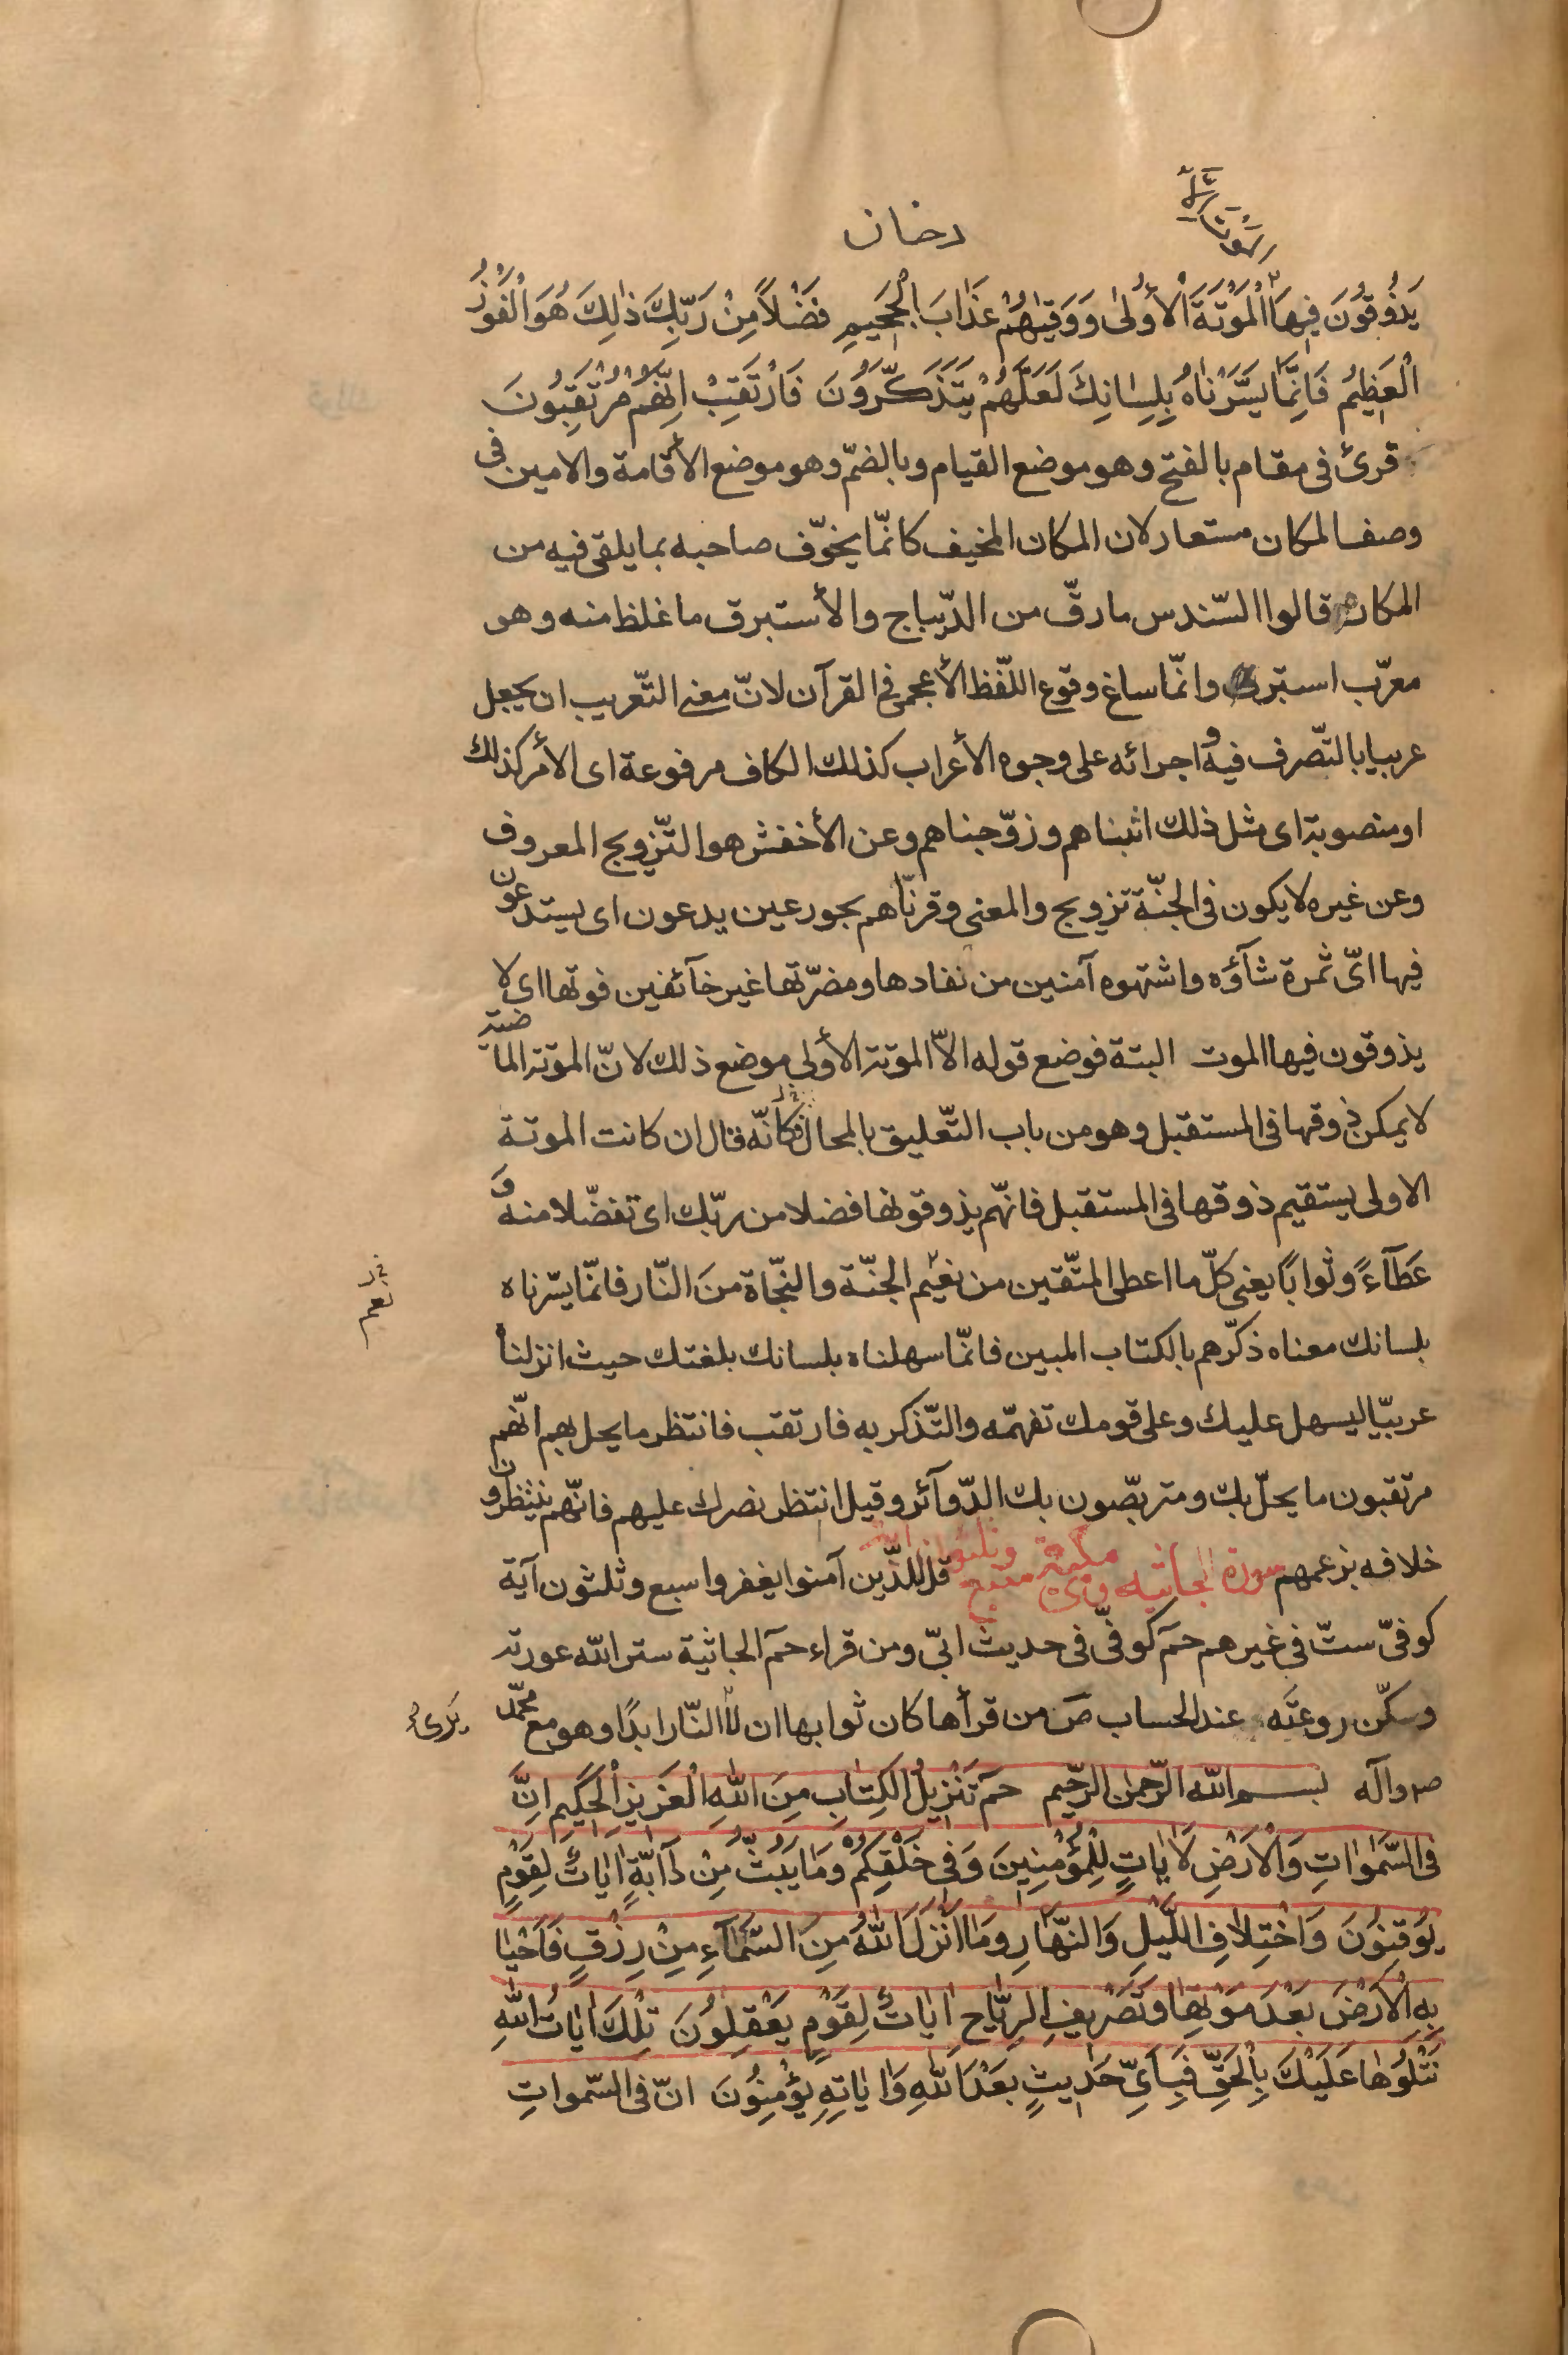 دخان
يَذُوقُونَ فِيهَا الْمَوْتَةَ الْأُولىٰ وَوَقيٰهُمْ عَذَابَ الْجَحِيمِ فَضْلاً مِنْ رَبِّكَ ذٰلِكَ هُوَ الْفَوْزُ
الْعَظِيمُ فَاِنَّمَا يَسَّرْنَاهُ بِلِسٰانِكَ لَعَلَّهُمْ يَتَذَكَّرُونَ فَارْتَقِبْ اِنَّهُمْ مُرْتَقِبُونَ
قرئ فى مقام بالفتح وهو موضع القيام وبالضمّ وهو موضع الأقامة والامين فى
وصف المكان مستعار لان المكان المخيف كانّما يخوّف صاحبه بما يلقى فيه من
المكاره قالوا السّندس مارقّ من الدّيباج والأستبرق ما غلظ منه وهو
معرّب استبرك وانّما ساغ وقوع اللّفظ الأعجمى فى القرآن لانّ معنى التّعريب ان يجعل
عربيا بالتّصرف فيه و اجرائه على وجوه الأعراب كذلك الكاف مرفوعة اى الأمر كذلك
او منصوبة اى مثل ذلك اثبناهم وزوّجناهم وعن الأخفش هو التّزويج المعروف
وعن غيره لا يكون فى الجنّة تزويج والمعنى وقرنّاهم بحور عين يدعون اى يستدعون
فيها اىّ ثمرة شآؤه واشتهوه آمنين من نفادها ومضرّتها غير خآئفين فوتها اى لا
يذوقون فيها الموت البتة فوضع قوله الاّ الموتة الأولى موضع ذلك لانّ الموتة الماضية
لا يمكن ذوقها فى المستقبل وهو من باب التّعليق بالمحال فكأنّه قال ان كانت الموتة
الاولى يستقيم ذوقها فى المستقبل فانّهم يذوقونها فضلا من ربّك اى تفضّلا منه و
عَطآءً وثوابًا يعنى كلّ ما اعطى المتّقين من نعيم الجنّة والنّجاة منَ النّار فانّما يسّرناه
نعم
بلسانك معناه ذكّرهم بالكتاب المبين فانّما سهلناه بلسانك بلغتك حيث انزلناه
عربيّا ليسهل عليك وعلى قومك تفهّمه والتّذكر به فارتقب فانتظر ما يحل بهم انّهم
مرتقبون ما يحلّ بك ومتربّصون بك الدّوآئر وقيل انتظر نصرك عليهم فانّهم ينتظرون
خلافه بزعمهم سورة الجاثيه مكية وهى سبع وثلثون آية قل للّذين آمنوا يغفروا سبع وثلثون آية
كوفىّ ستّ فى غيرهم حمٓ كوفىّ فى حديث ابىّ ومن قراء حمٓ الجاثية ستر الله عورته
وسكّن روعتَه عند الحساب صَ من قرأها كان ثوابها ان لا النّار ابدًا وهو مع محمّد
يَرىٰ
ص وآله بسم الله الرّحمن الرّحيم حمٓ تَنْزِيلُ الْكِتٰابِ مِنَ اللهِ الْعَزِيزِ الْحَكِيمِ اِنَّ
فى السَّمٰوٰاتِ وَالْاَرْضِ لَاٰيٰاتٍ لِلْمُؤْمِنِينَ وَفِى خَلْقِكُمْ وَمٰا يَبُثُّ مِنْ دٰآبَّةٍ اٰيٰاتٌ لِقَوْمٍ
يُوقِنُونَ وَاخْتِلاٰفِ اللَّيْلِ وَالنَّهٰارِ وَمٰا اَنْزَلَ اللهُ مِنَ السَّمٰآءِ مِنْ رِزْقٍ فَاَحْيٰا
بِهِ الْاَرْضَ بَعْدَ مَوْتِهٰا وَتَصْرِيفِ الرِّيٰاحِ اٰيٰاتٌ لِقَوْمٍ يَعْقِلُونَ تِلْكَ اٰيٰاتُ اللهِ
نَتْلُوهٰا عَلَيْكَ بِالْحَقِّ فَبِاَىِّ حَدِيثٍ بَعْدَ اللهِ وَاٰيٰاتِهِ يُؤْمِنُونَ انّ فى السّموٰاتِ